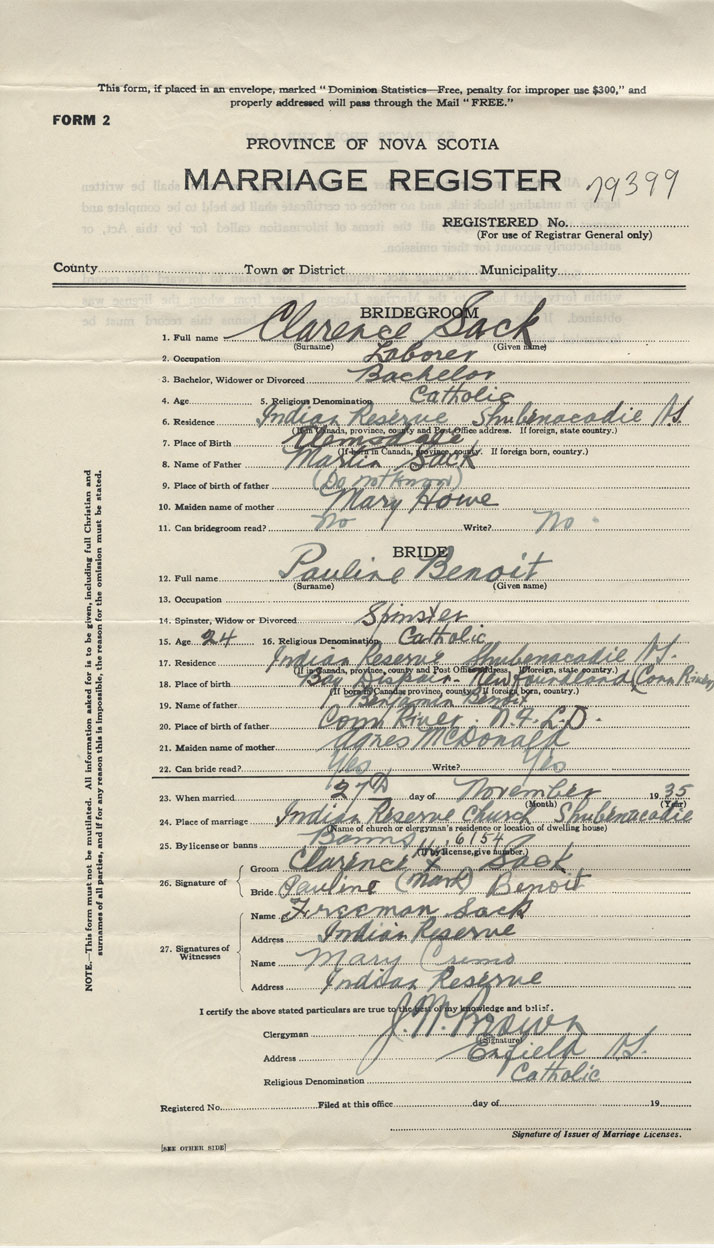 This form, if placed in an envelope, marked "Dominion Statistics—Free, penalty for improper use $300," and
properly addressed will pass through the Mail "FREE."
FORM 2
PROVINCE OF NOVA SCOTIA
MARRIAGE REGISTER 79399
REGISTERED No.
(For use of Registrar General only)
County Town or District Municipality
BRIDEGROOM
1. Full name Clarence Sack
(Surname) (Given name)
2. Occupation Laborer
3. Bachelor, Widower or Divorced Bachelor
4. Age 5. Religious Denomination Catholic
6. Residence Indian Reserve Shubenacadie N.S.
(If in Canada, province, county and Post Office address. If foreign, state country.)
7. Place of Birth Elmsdale
(If born in Canada, province, county. If foreign born, country.)
8. Name of Father Martin Sack
9. Place of birth of father (Do not know)
10. Maiden name of mother Mary Howe
11. Can bridegroom read? No Write? No.
BRIDE
12. Full name Pauline Benoit
(Surname) (Given name)
13. Occupation
14. Spinster, Widow or Divorced Spinster
15. Age 24 16. Religious Denomination Catholic
17. Residence Indian Reserve Shubenacadie N.S.
(If in Canada, province, county and Post Office address. If foreign, state country.)
18. Place of birth Bay Dispair. Newfoundland (Conn River)
(If born in Canada, province, county. If foreign born, country.)
19. Name of father Benjamin Benoit
20. Place of birth of father Conn River. N.F.L.D.
21. Maiden name of mother Agnes McDonald
22. Can bride read? Yes Write? Yes
23. When married 27th day of November 1935
(Month) (Year)
24. Place of marriage Indian Reserve Church Shubenacadie
(Name of church or clergyman's residence or location of dwelling house)
25. By license or banns Banns 6154
(If by license, give number.)
26. Signature of { Groom Clarence X Sack
Bride Pauline (Mark) Benoit
27. Signatures of Witnesses { Name Freeman Sack
Address Indian Reserve
Name Mary
Address Indian Reserve
I certify the above stated particulars are true to the best of my knowledge and belief.
Clergyman J. W. Brown
(Signature)
Address Enfield N.S.
Religious Denomination Catholic
Registered No. Filed at this office day of 19
Signature of Issuer of Marriage Licenses.
[SEE OTHER SIDE]
NOTE.—This form must not be mutilated. All information asked for is to be given, including full Christian and
surnames of all parties, and if for any reason this is impossible, the reason for the omission must be stated.